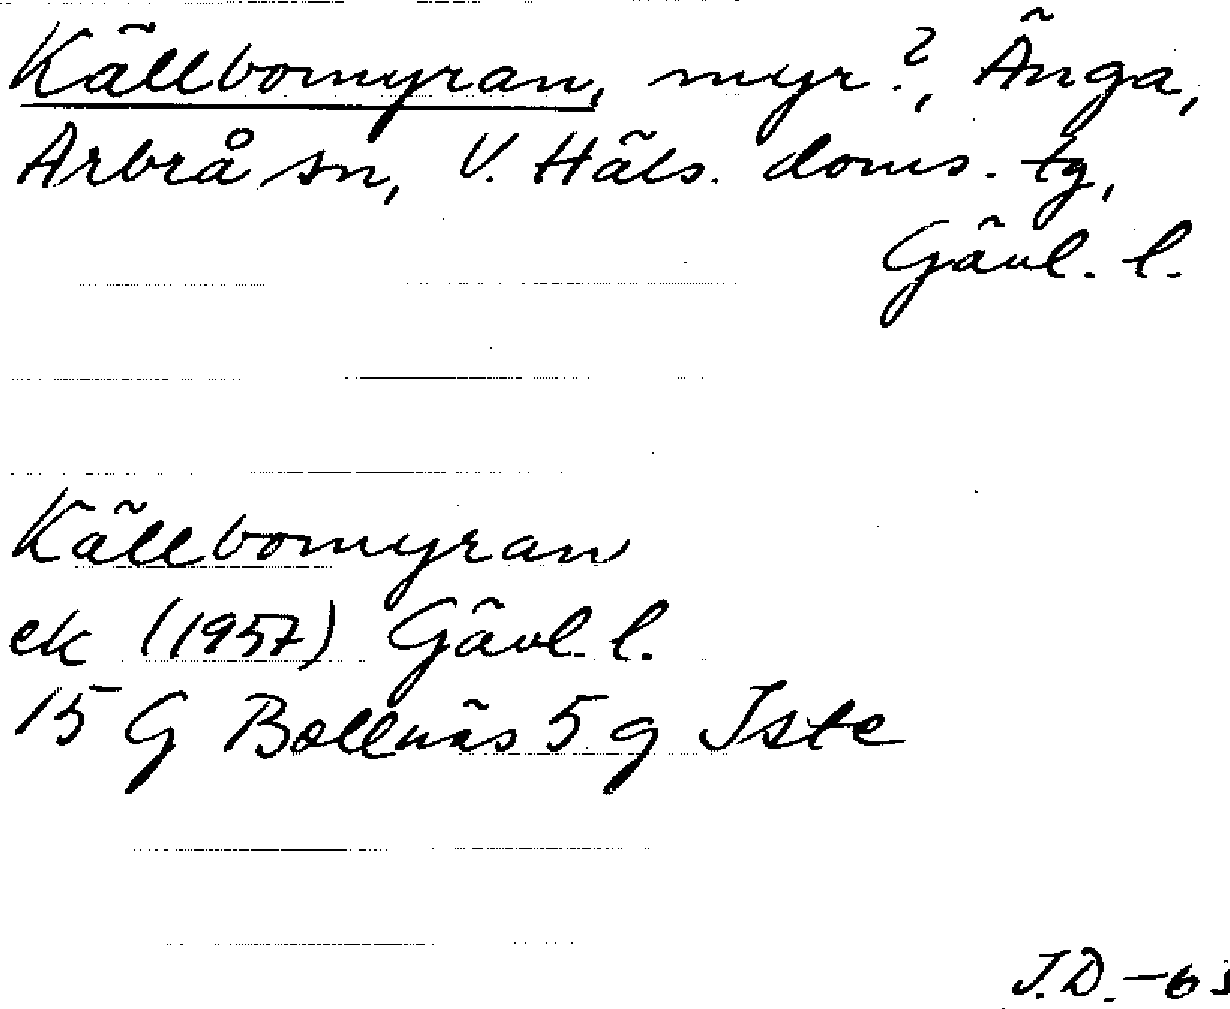 Källbomyran, myr?, Änga,
Arbrå sn, V. Häls. doms. tg,
Gävl. l.
Källbomyran
ek (1957) Gävl. l.
15 G Bollnäs 5 g Iste
J.D. -6